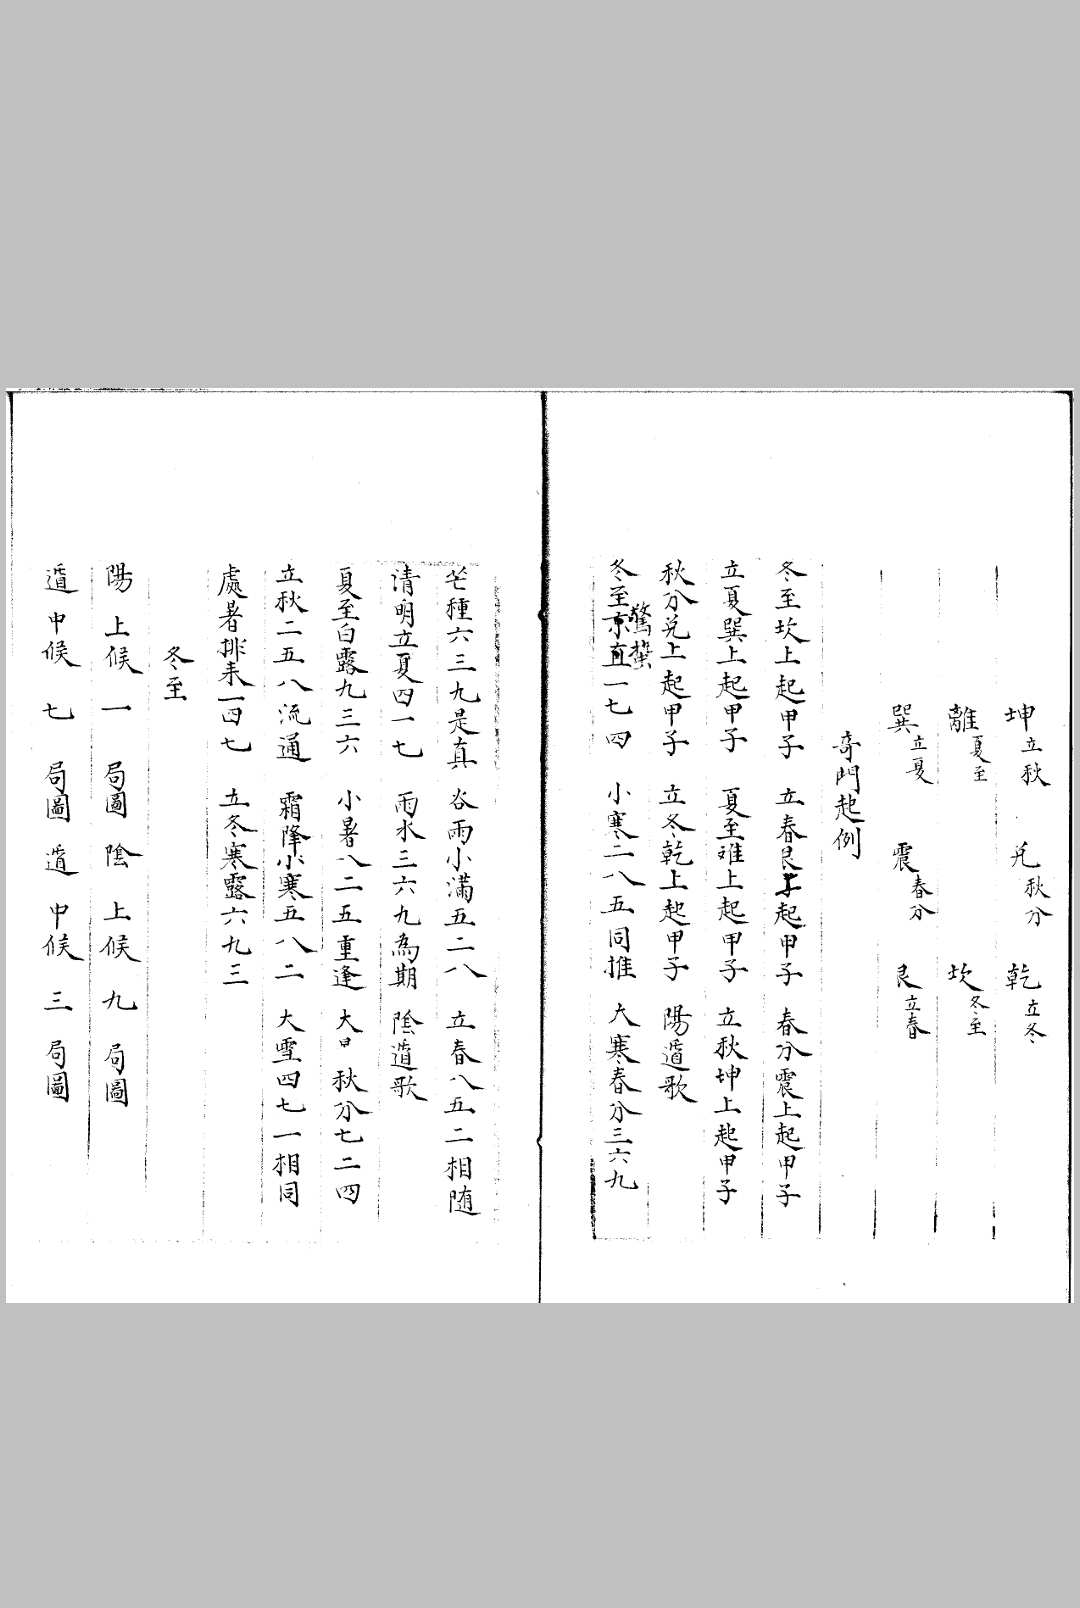 坤立秋 兌秋分 乾立冬
離夏至 坎冬至
巽立夏 震春分 艮立春
奇門起例
冬至坎上起甲子 立春艮上起甲子 春分震上起甲子
立夏巽上起甲子 夏至难上起甲子 立秋坤上起甲子
秋分兌上起甲子 立冬乾上起甲子 陽遁歌
驚蟄
冬至京直一七四 小寒二八五同推 大寒春分三六九
芒種六三九是真 谷雨小滿五二八 立春八五二相随
清明立夏四一七 雨水三六九為期 陰遁歌
夏至白露九三六 小暑八二五重逢 大日秋分七二四
立秋二五八流通 霜降小寒五八二 大雪四七一相同
處暑排来一四七 立冬寒露六九三
冬至
陽上候一局圖 陰上候九局圖
遁中候七局圖 遁中候三局圖